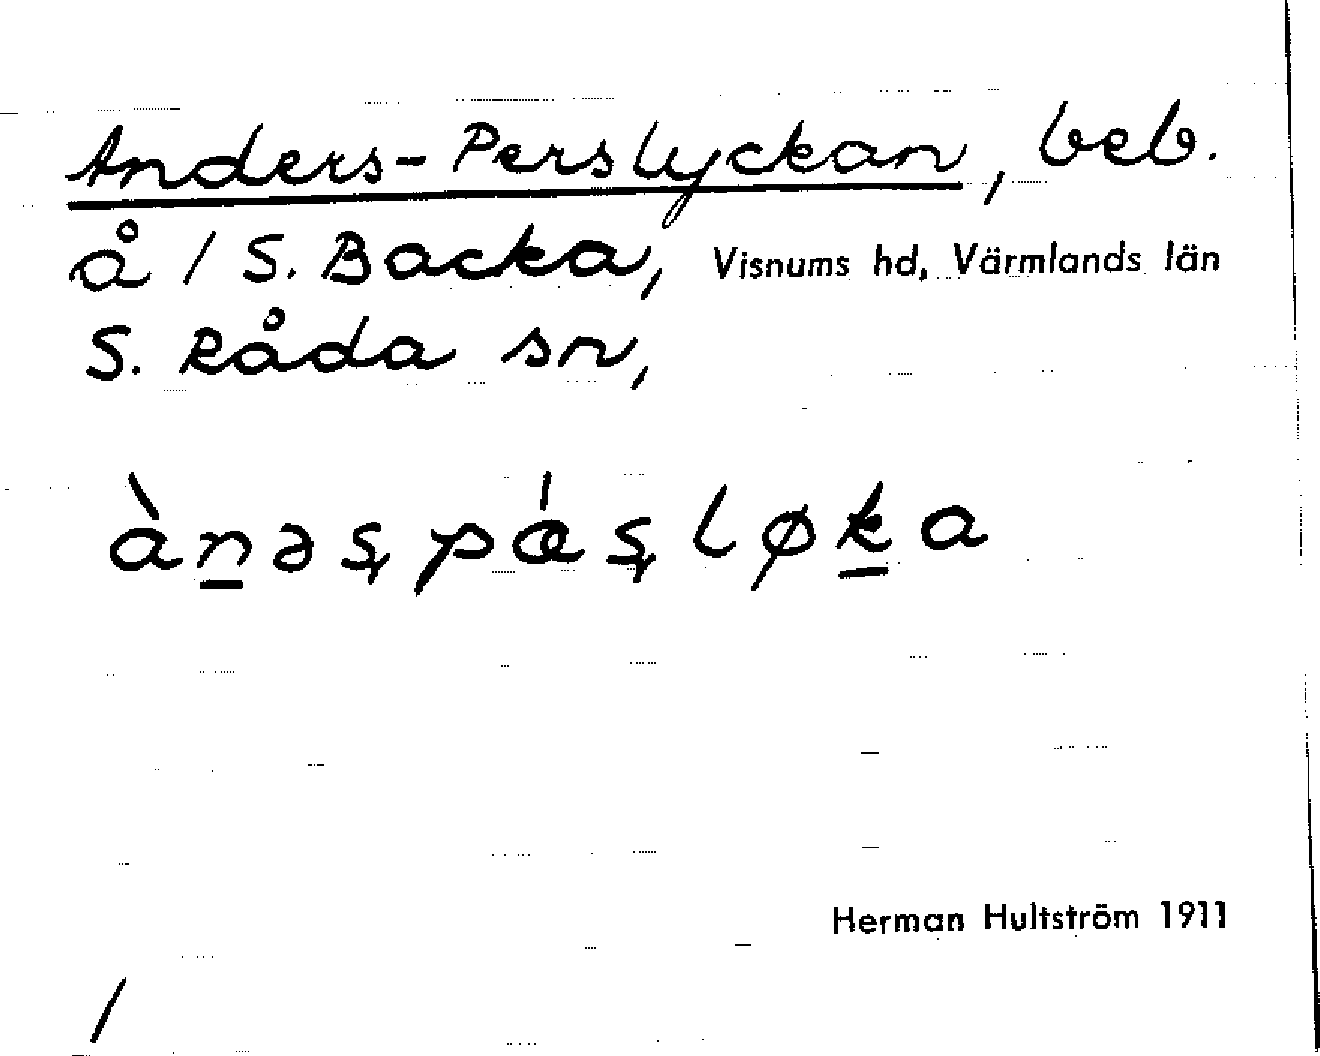 Anders-Perslyckan, beb.
å / S. Backa, Visnums hd, Värmlands län
S. Råda sn,
àn̲əʂpáʂløk̲a
Herman Hultström 1911
/